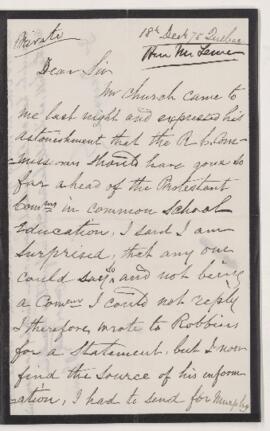 Private
18th Decr 78 Quebec
Hon Mr
Dear Sir
Mr Church came to
me last night and expressed his
astonishment that the R. C. Com-
missioners should have gone so
far ahead of the Protestant
Comrs in common School
Education, I said I am
surprised, that any one
could say so and not being
a Comr I could not reply
I therefore, wrote to Robbins
for a Statement, but I now
find the source of his inform-
ation, I had to send for Murphy